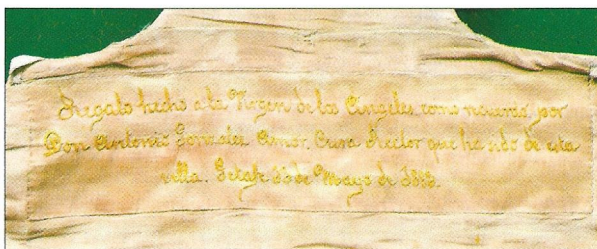 Regalo hecho a la Virgen de los Angeles como recuerdo por
Don Antonio Gonzalez Amor. Cura Rector que ha sido de esta
villa. Getafe de Mayo de